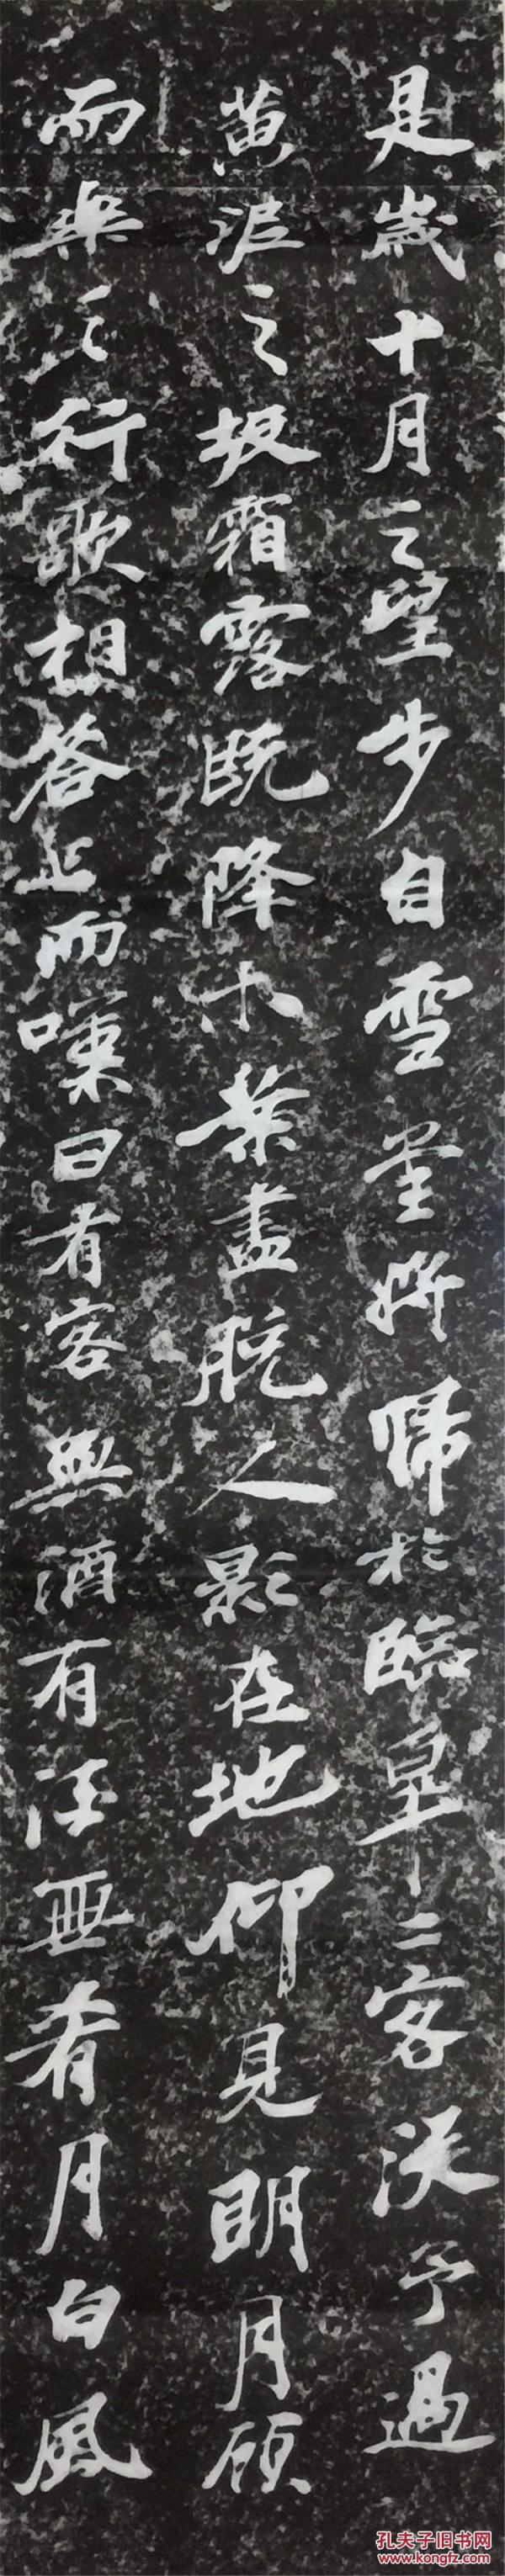 是歲十月之望步自雪堂將歸於臨皋二客從予過
黃泥之坂霜露既降木葉盡脫人影在地仰見明月顧
而樂之行歌相答已而嘆曰有客無酒有酒無肴月白風
孔夫子旧书网
www.kongfz.com